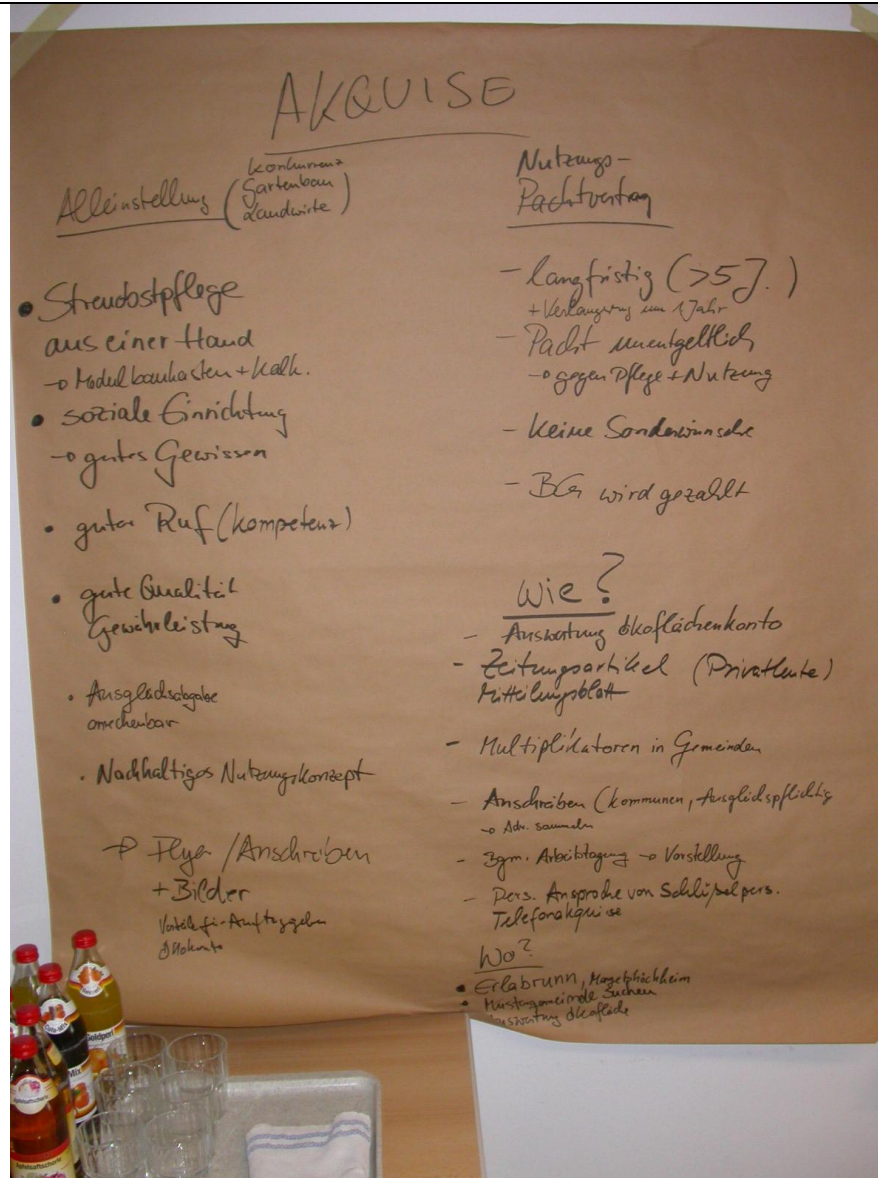 AKQUISE
Alleinstellung (Konkurrenz
Gartenbau
Landwirte)
• Streuobstpflege
aus einer Hand
→ Modulbaukasten + Kalk.
• soziale Einrichtung
→ gutes Gewissen
• guter Ruf (Kompetenz)
• gute Qualität
Gewährleistung
• Ausgleichsabgabe
anrechenbar
• Nachhaltiges Nutzungskonzept
→ Flyer / Anschreiben
+ Bilder
Vorteile für Auftraggeber
Ökokonto
Nutzungs-
Pachtvertrag
- langfristig (>5 J.)
+ Verlängerung um 1 Jahr
- Pacht unentgeltlich
→ gegen Pflege + Nutzung
- Keine Sonderwünsche
- BG wird gezahlt
Wie?
- Auswertung Ökoflächenkonto
- Zeitungsartikel (Privatleute)
Mitteilungsblatt
- Multiplikatoren in Gemeinden
- Anschreiben (Kommunen, Ausgleichspflichtig
→ Adr. sammeln
- Bgm. Arbeitstagung → Vorstellung
- Pers. Ansprache von Schlüsselpers.
Telefonakquise
Wo?
• Erlabrunn, Margetshöchheim
• Mustergemeinde suchen
Auswertung Ökofläche
Goldperl
Mix
Apfelsaftschorle